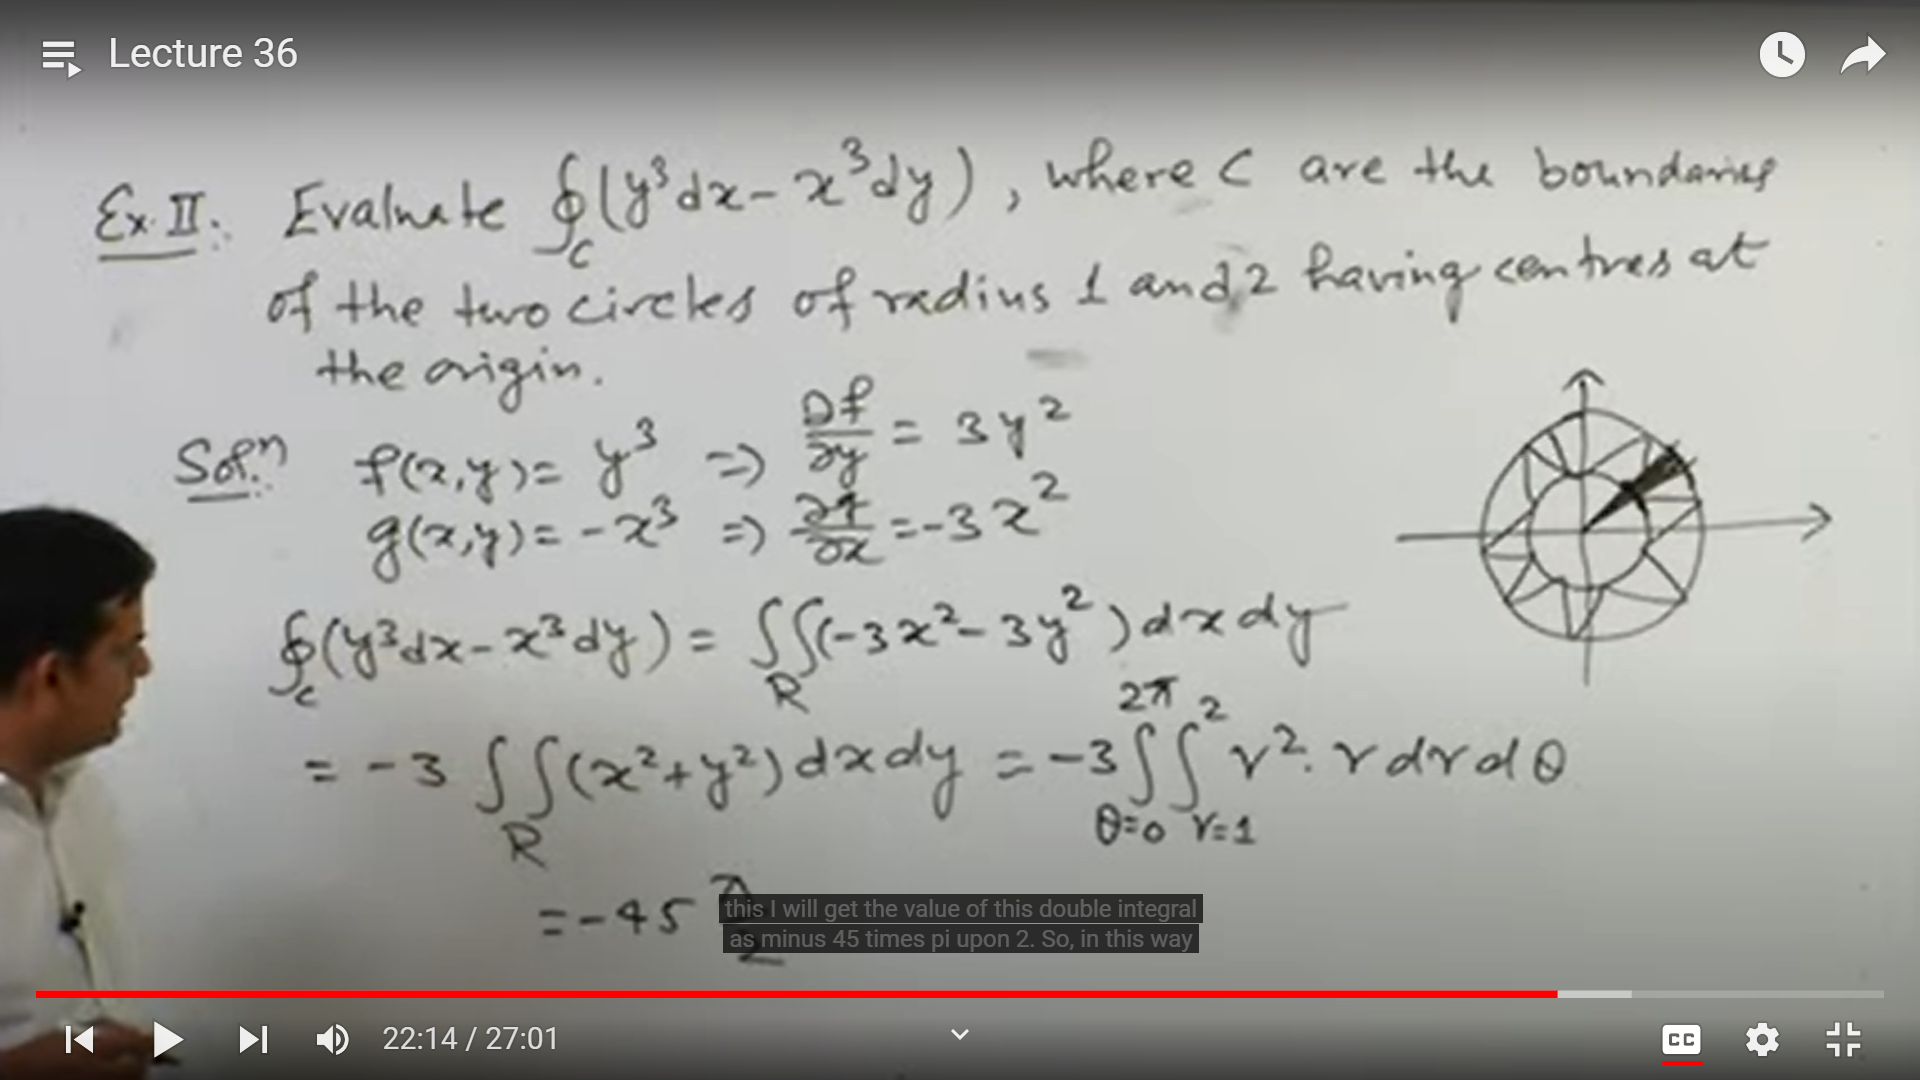 Lecture 36
Ex.II:. Evaluate ∮_C (y³dx - x³dy), where C are the boundaries
of the two circles of radius 1 and 2 having centres at
the origin.
Solⁿ: f(x,y) = y³ ⇒ ∂f/∂y = 3y²
g(x,y) = -x³ ⇒ ∂f/∂x = -3x²
∮_C (y³dx - x³dy) = ∫∫_R (-3x² - 3y²) dx dy
= -3 ∫∫_R (x²+y²) dx dy = -3 ∫_{θ=0}^{2π} ∫_{r=1}^{2} r². r dr dθ
= -45 π/2
this I will get the value of this double integral
as minus 45 times pi upon 2. So, in this way
22:14 / 27:01
CC